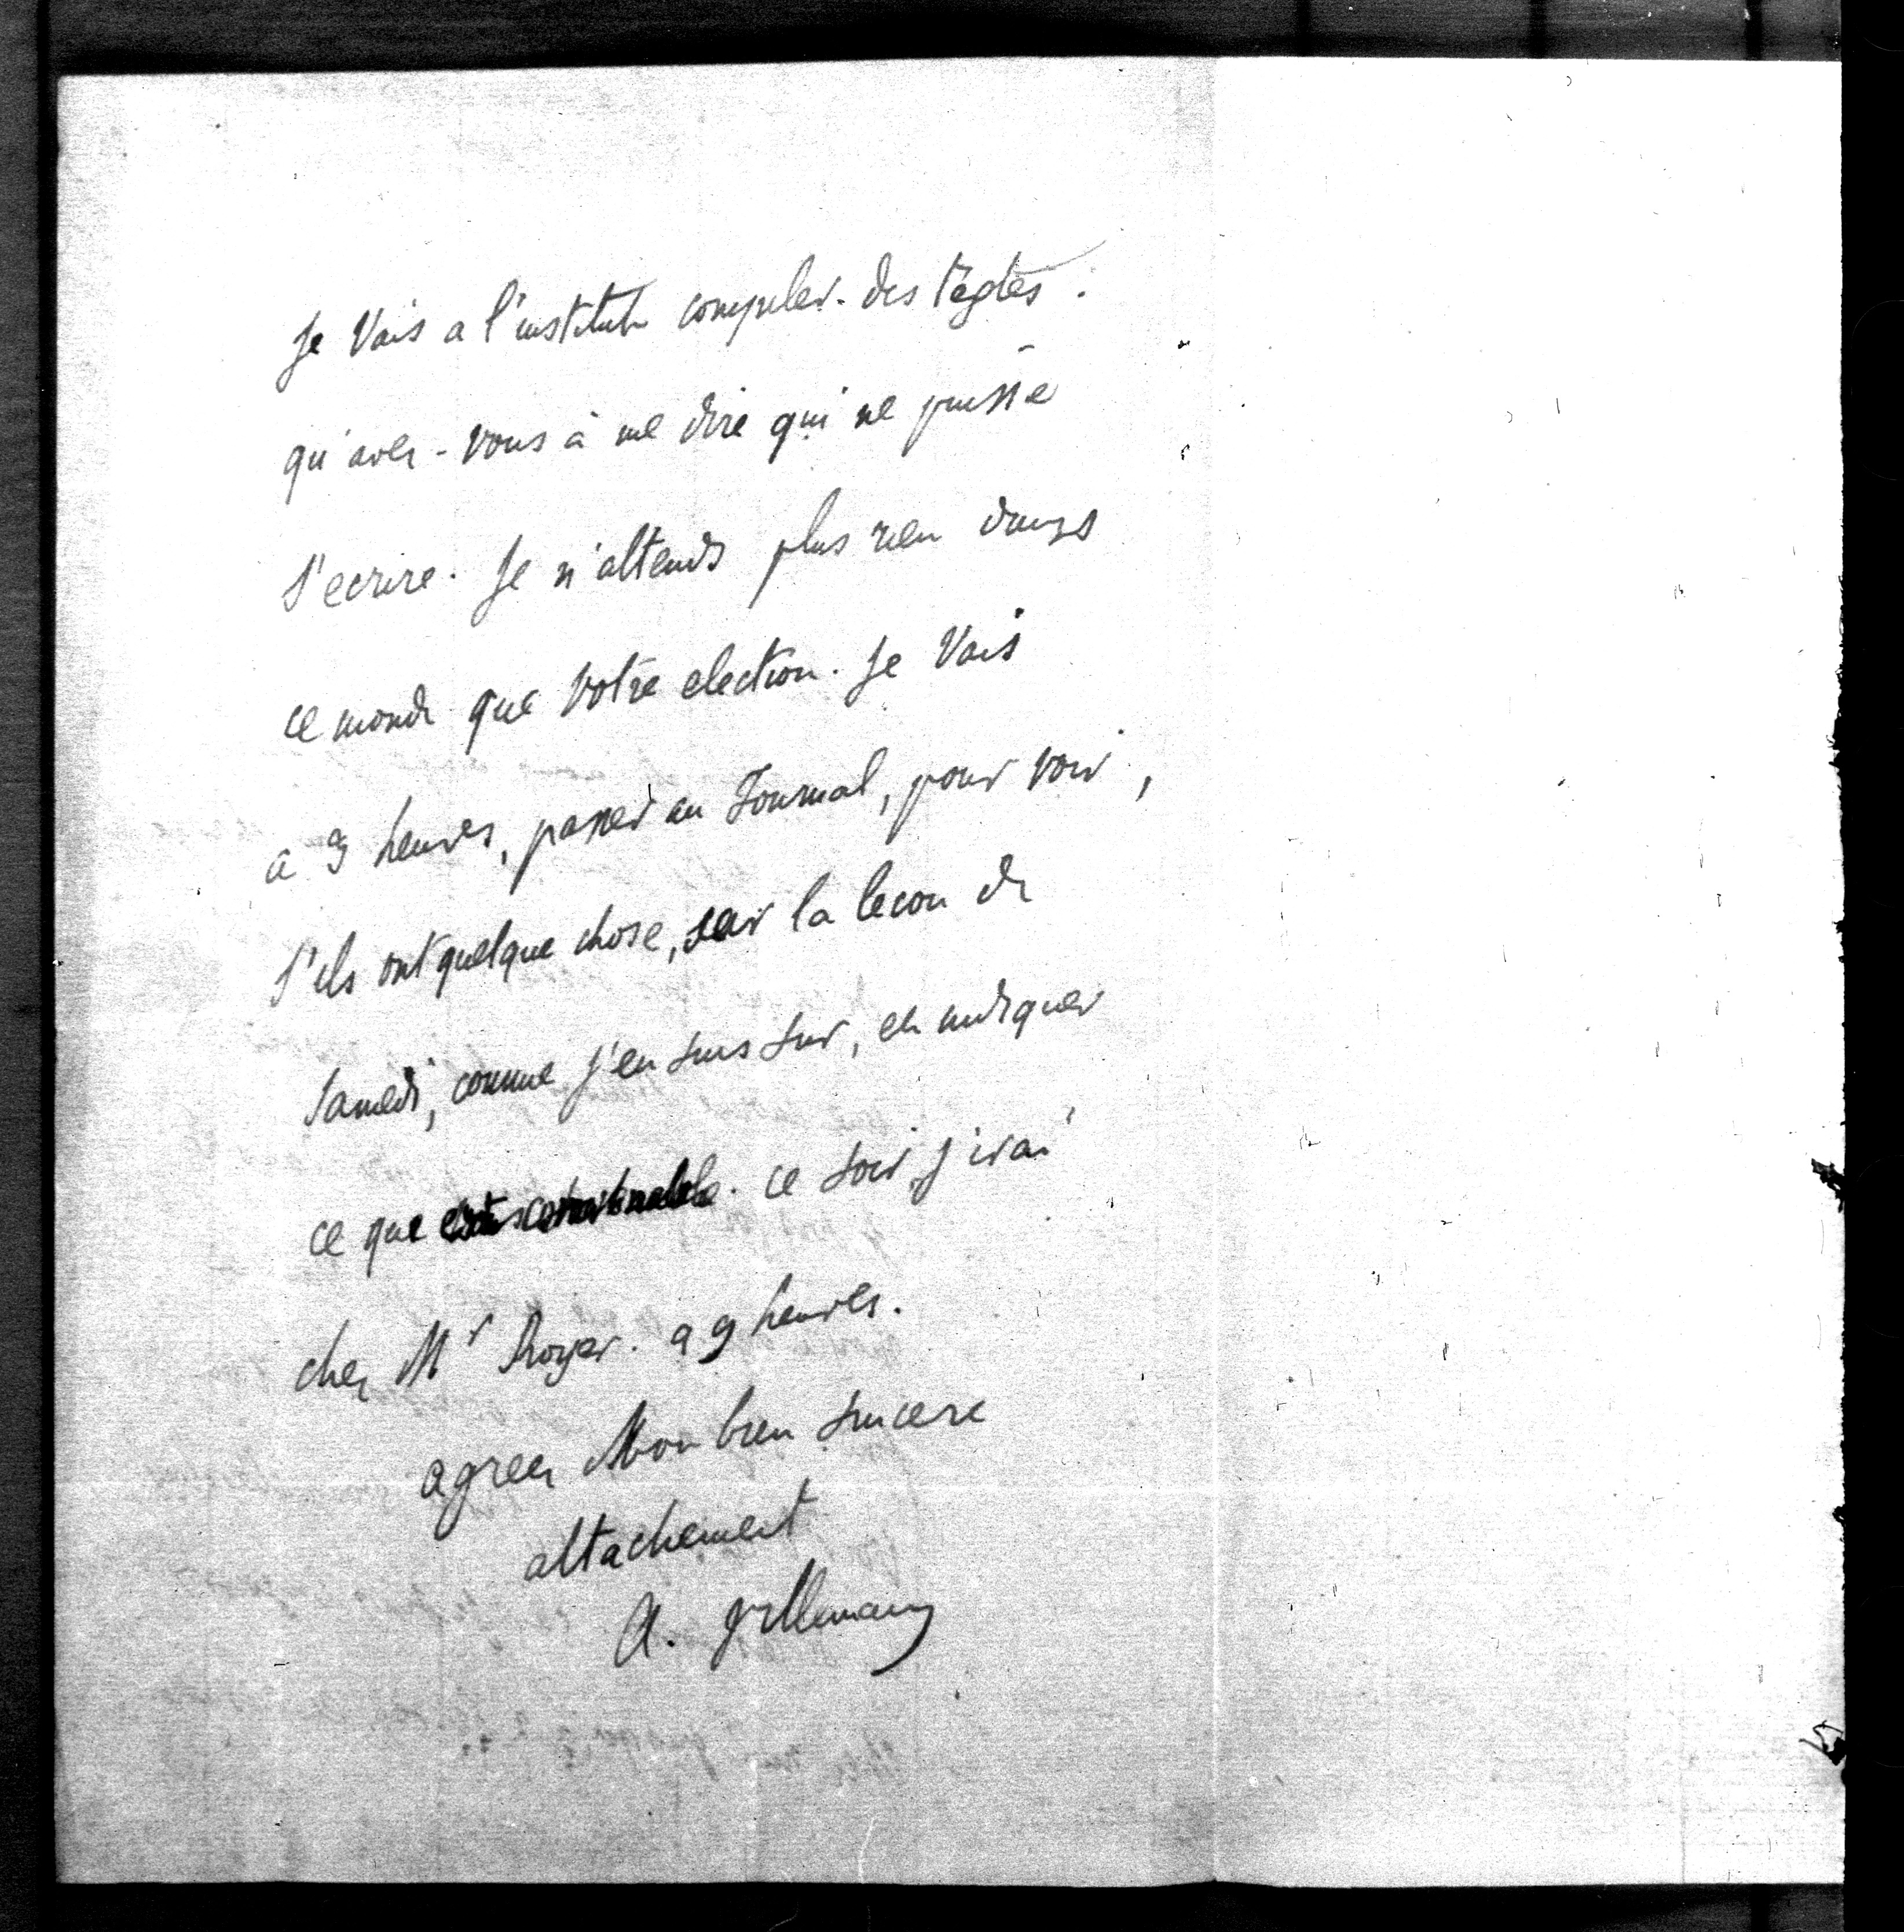 Je Vais a l'institut compiler des règles :
qu'avez-vous à me dire qui ne puisse
s'ecrire. Je n'attends plus rien dans
ce monde que votre election. Je Vais
a 3 heures, passer au Journal, pour voir,
s'ils ont quelque chose, sur la lecon de
Samedi, comme j'en suis sur, et indiquer
ce que . ce soir, j'irai
chez Mr Royer. a 9 heures.
agreez Mon bien sincere
attachement
A. Villemain